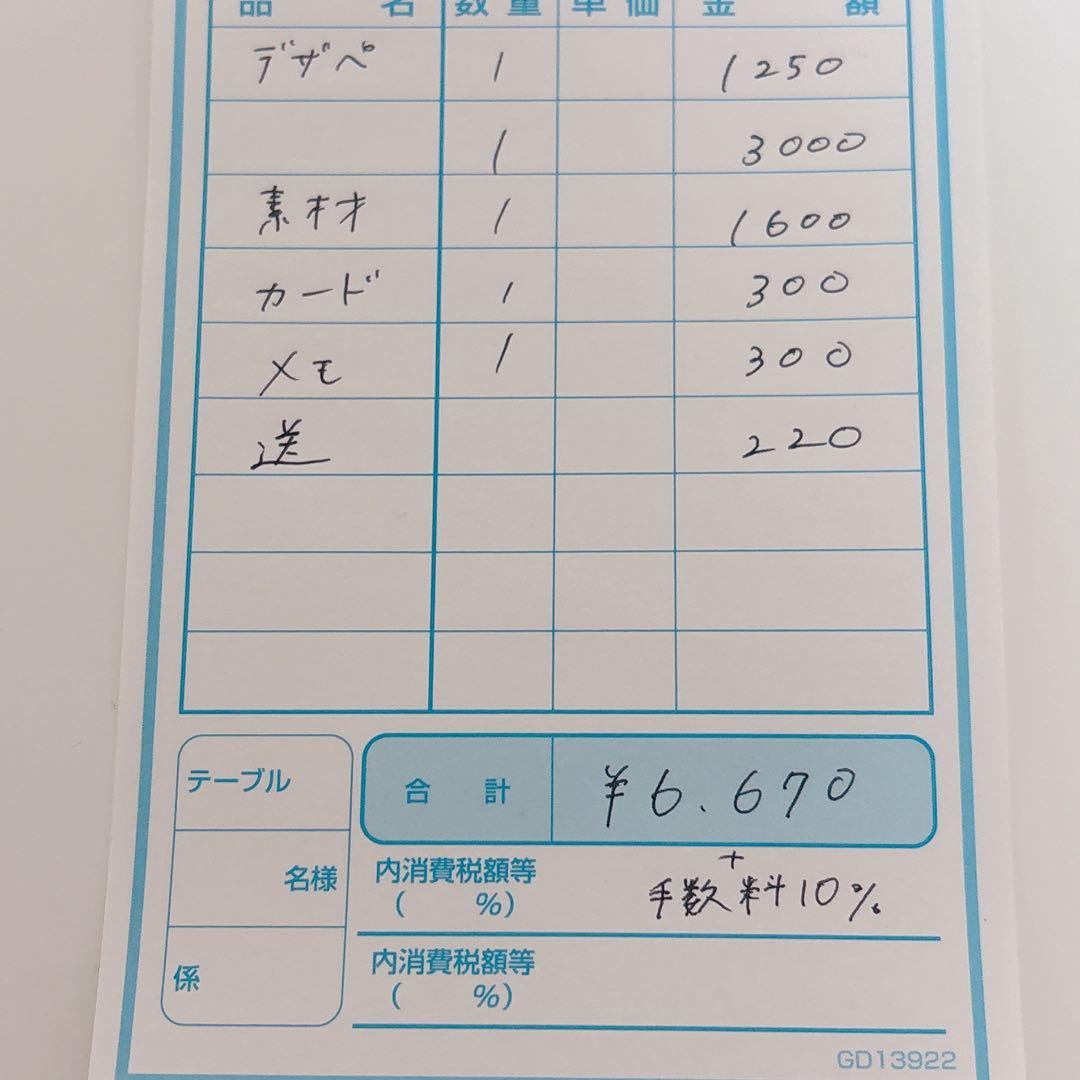 品 名 数量 単価 金 額
デザペ 1 1250
1 3000
素材 1 1600
カード 1 300
メモ 1 300
送 220
テーブル
合 計 ¥6.670
名様
内消費税額等
( %)
+
手数料10%
係
内消費税額等
( %)
GD13922